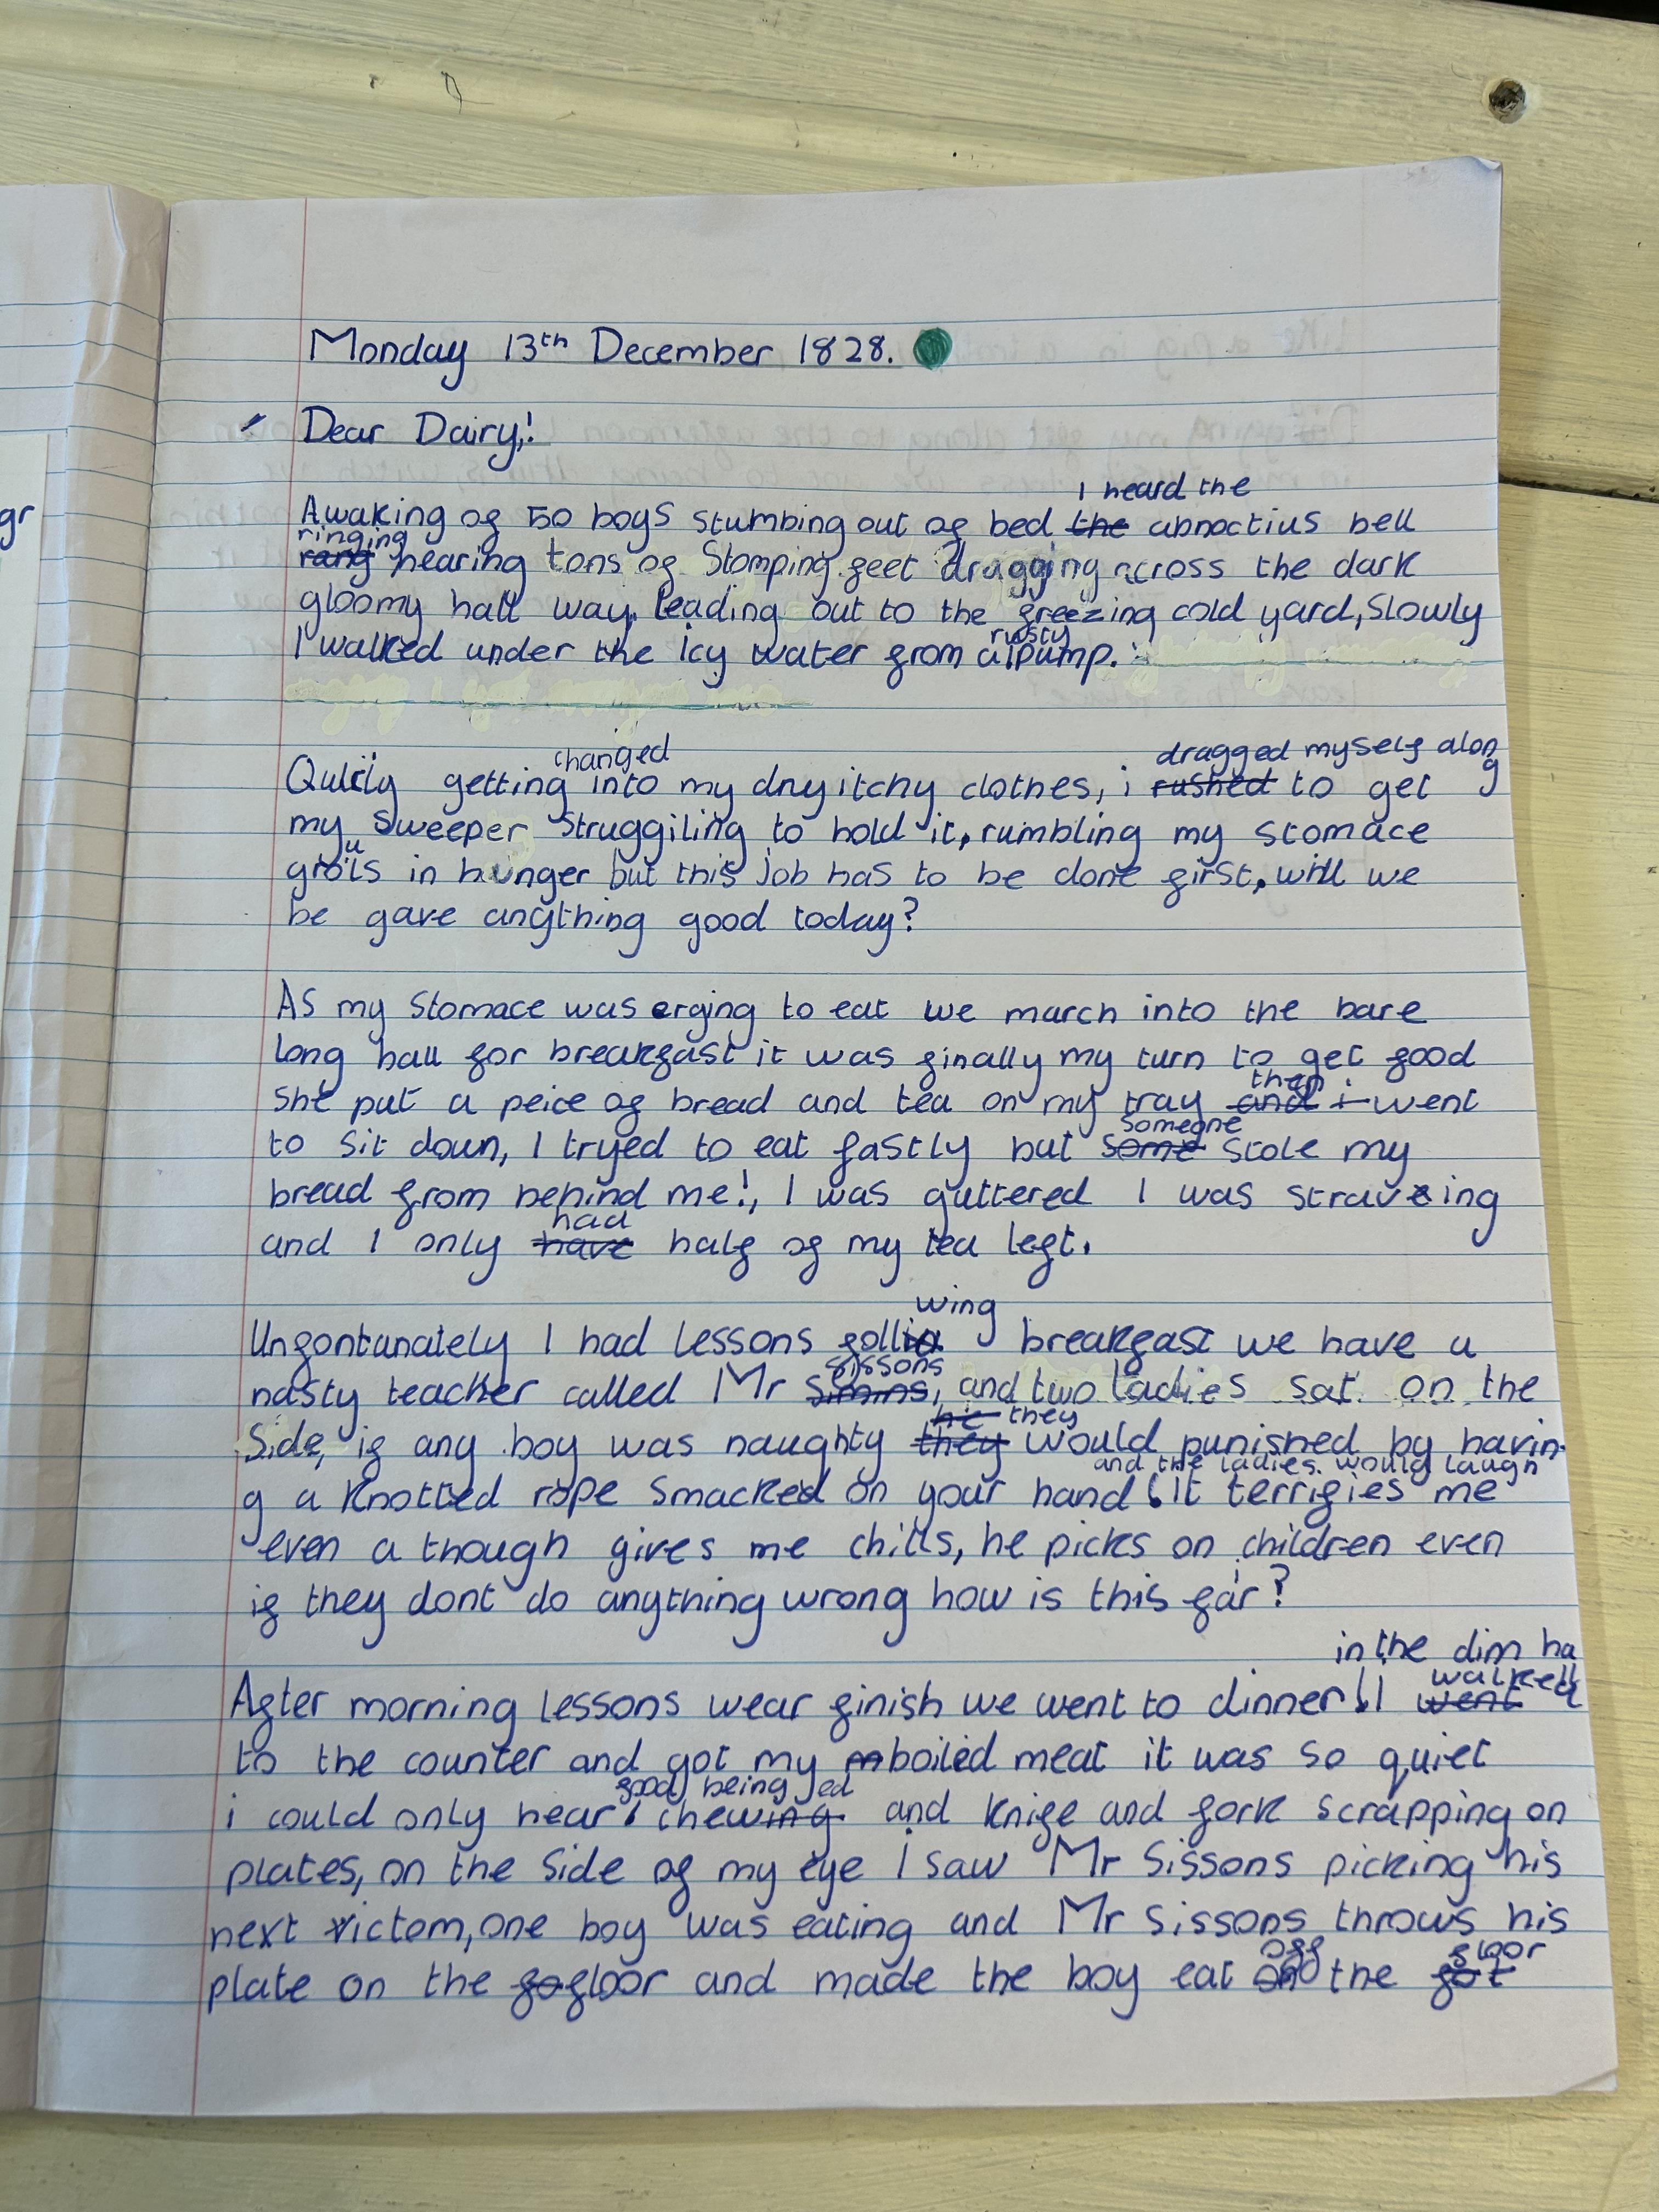 gr
Monday 13th December 1828.
Dear Dairy,!
I heard the
Awaking of 50 boys stumbing out of bed the abnoctius bell
ringing
rang hearing tons of Stomping feet dragging across the dark
gloomy hall way, leading out to the freezing cold yard, slowly
rusty
I walked under the icy water from a pump.
changed
dragged myself along
Quiily getting into my dry itchy clothes, i rushed to get
my sweeper struggiling to hold it, rumbling my stomace
u
grols in hunger but this job has to be done first, will we
be gave anything good today?
As my stomace was erging to eat we march into the bare
long hall for breakfast it was finally my turn to get food
then
she put a peice of bread and tea on my tray and i went
someone
to sit down, I tryed to eat fastly but some stole my
bread from behind me!, I was guttered I was straveing
had
and I only have half of my tea left.
wing
Unfontunately I had lessons follin breakfast we have a
sissons
nasty teacher called Mr simins, and two ladies sat on the
he they
side, if any boy was naughty they would punished by havin
and the ladies would laugh
g a knotted rope smacked on your hand! It terrifies me
even a though gives me chills, he picks on children even
if they dont do anything wrong how is this far?
in the dim hall
walked
After morning lessons wear finish we went to dinner! I went
to the counter and got my boiled meat it was so quiet
food being ed
i could only hear chewing and knife and fork scrapping on
plates, on the side of my eye I saw Mr Sissons picking his
next victom, one boy was eating and Mr Sissons throws his
off floor
plate on the fofloor and made the boy eat on the fot